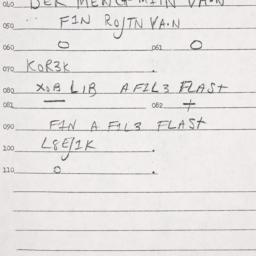 040 DER MENG MIIN VA.N
050 FIN ROJTN VA.N
060 O 061 O
070 KOR3K .
080 XOB LIB A FIL3 FLAST
081 — 082 +
090 FIN A FIL3 FLAST
100 L8EJ1K .
110 O .